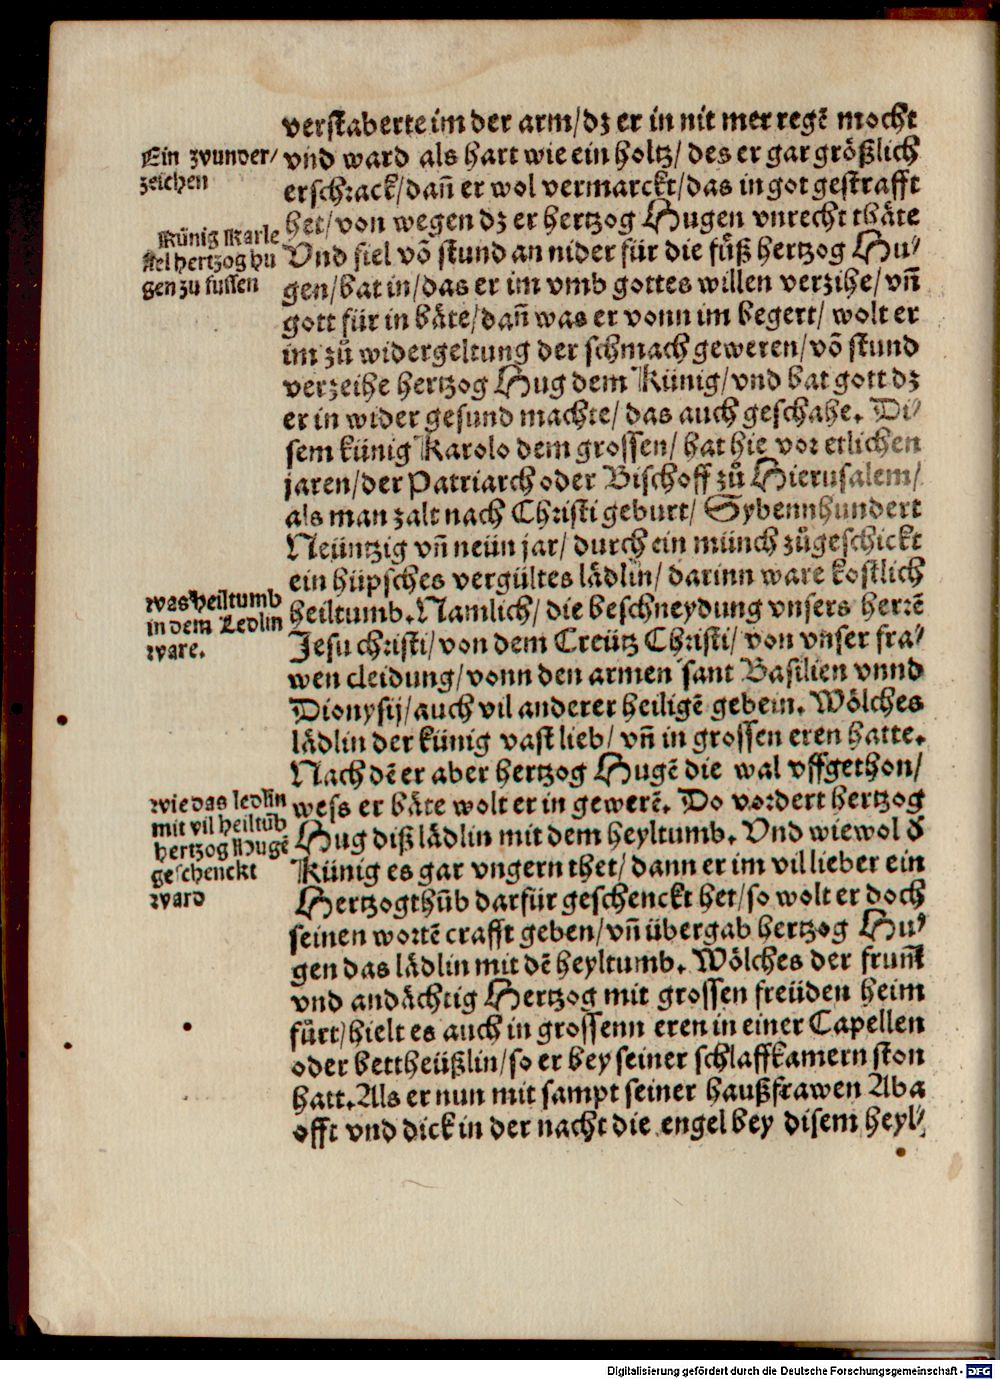 verstaberte im der arm/dz er in nit mer regē mocht
Ein wunder/
zeichen
vnd ward als hart wie ein holtz/ des er gar größlich
erschrack/dañ er wol vermarckt/das in got gestrafft
het/von wegen dz er hertzog Hugen vnrecht thäte
Künig Karle
fiel hertzog hu
gen zu fussen
Vnd fiel vō stund an nider für die füß hertzog Hu⸗
gen/bat in/das er im vmb gottes willen verzihe/vñ
gott für in bäte/dañ was er vonn im begert/ wolt er
im zů widergeltung der schmach geweren/vō stund
verzeihe hertzog Hug dem Künig/vnd bat gott dz
er in wider gesund machte/das auch geschahe. Di⸗
sem künig Karolo dem grossen/ hat hie vor etlichen
jaren/der Patriarch oder Bischoff zů Hierusalem/
als man zalt nach Christi geburt/ Sybennhundert
Neüntzig vñ neün jar/ durch ein münch zůgeschickt
ein hüpsches vergültes lädlin/ darinn ware kostlich
was heiltumb
in dem Ledlin
ware.
heiltumb. Namlich/ die beschneydung vnsers herrē
Jesu christi/von dem Creütz Christi/ von vnser fra⸗
wen cleidung/vonn den armen sant Basilien vnnd
Dionysij/auch vil anderer heiligē gebein. Wölches
lädlin der künig vast lieb/ vñ in grossen eren hatte.
Nach dē er aber hertzog Hugē die wal vffgethon/
wie das ledlin
mit vil heiltūb
hertzog Hugē
geschenckt
ward
wess er bäte wolt er in gewerē. Do vordert hertzog
Hug diß lädlin mit dem heyltumb. Vnd wiewol d̄
Künig es gar vngern thet/ dann er im vil lieber ein
Hertzogthūb darfür geschenckt het/so wolt er doch
seinen wortē crafft geben/vñ übergab hertzog Hu⸗
gen das lädlin mit dē heyltumb. Wölches der frum̄
vnd andächtig Hertzog mit grossen freüden heim
fürt/hielt es auch in grossenn eren in einer Capellen
oder bettheüßlin/so er bey seiner schlaffkamern ston
hatt. Als er nun mit sampt seiner haußfrawen Aba
offt vnd dick in der nacht die engel bey disem heyl⸗
Digitalisierung gefördert durch die Deutsche Forschungsgemeinschaft - DFG